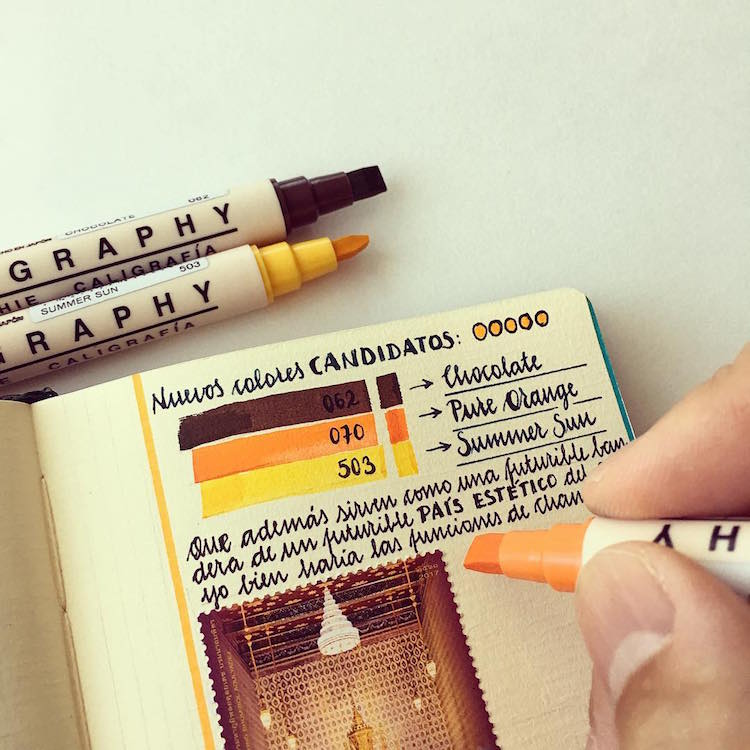 CHOCOLATE 062
GRAPHY
CALIGRAFÍA
SUMMER SUN 503
RAPHY
CALIGRAFÍA
Nuevos colores CANDIDATOS:
062 → Chocolate
070 → Pure Orange
503 → Summer Sun
Que además sirven como una futurible ban
dera de un futurible PAÍS ESTÉTICO del
yo bien haría las funciones de
2017
HY